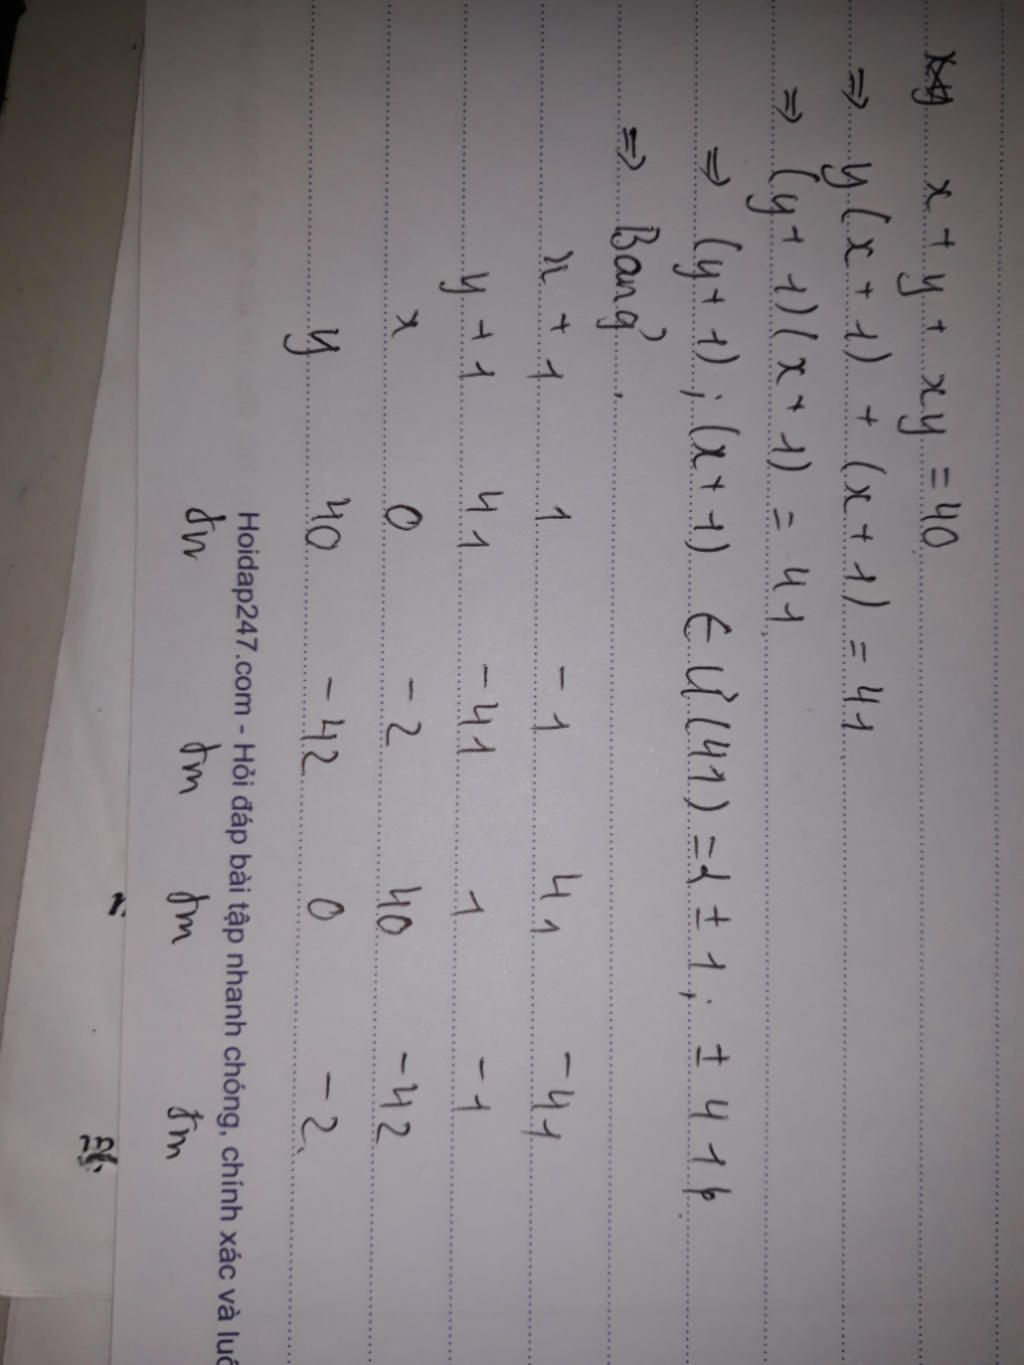 x + y + xy = 40
⇒ y(x + 1) + (x + 1) = 41
⇒ (y + 1)(x + 1) = 41
⇒ (y + 1) ; (x + 1) ∈ Ư(41) = { ± 1 ; ± 41 }
⇒ Bảng
x + 1 1 -1 41 -41
y + 1 41 -41 1 -1
x 0 -2 40 -42
y 40 -42 0 -2
Hoidap247.com - Hỏi đáp bài tập nhanh chóng, chính xác và
tm tm tm tm